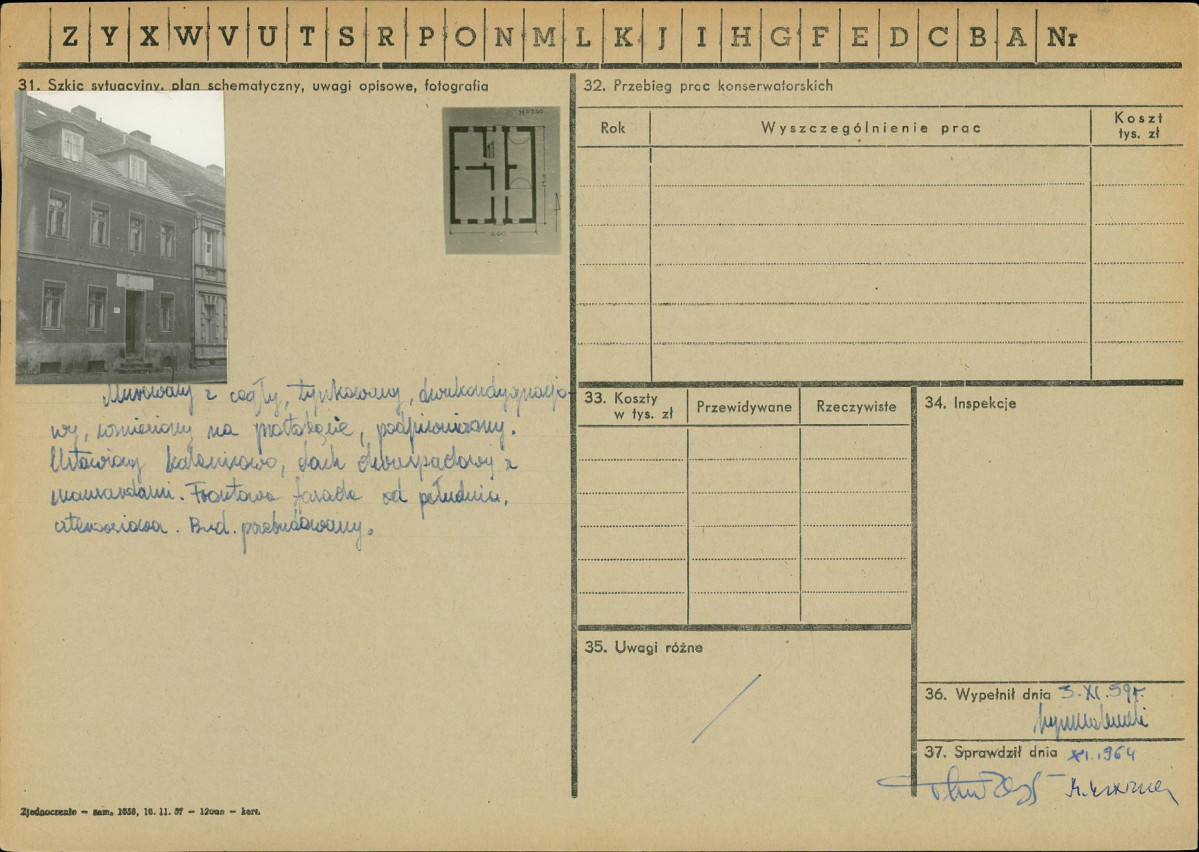 Z Y X W V U T S R P O N M L K J I H G F E D C B A Nr
31. Szkic sytuacyjny, plan schematyczny, uwagi opisowe, fotografia
Murowany z cegły, tynkowany, dwukondygnacjo-
wy, wzniesiony na prostokącie, podpiwniczony.
Ustawiony kalenicowo, dach dwuspadowy z
mansardami. Frontowa fasada od południa,
czteroosiowa. Bud. przebudowany.
32. Przebieg prac konserwatorskich
Rok Wyszczególnienie prac Koszt tys. zł
33. Koszty w tys. zł Przewidywane Rzeczywiste
34. Inspekcje
35. Uwagi różne
36. Wypełnił dnia 3. XI. 59r.
37. Sprawdził dnia XI. 1964
Zjednoczenie — zam. 1658, 16. 11. 57 — — kart.